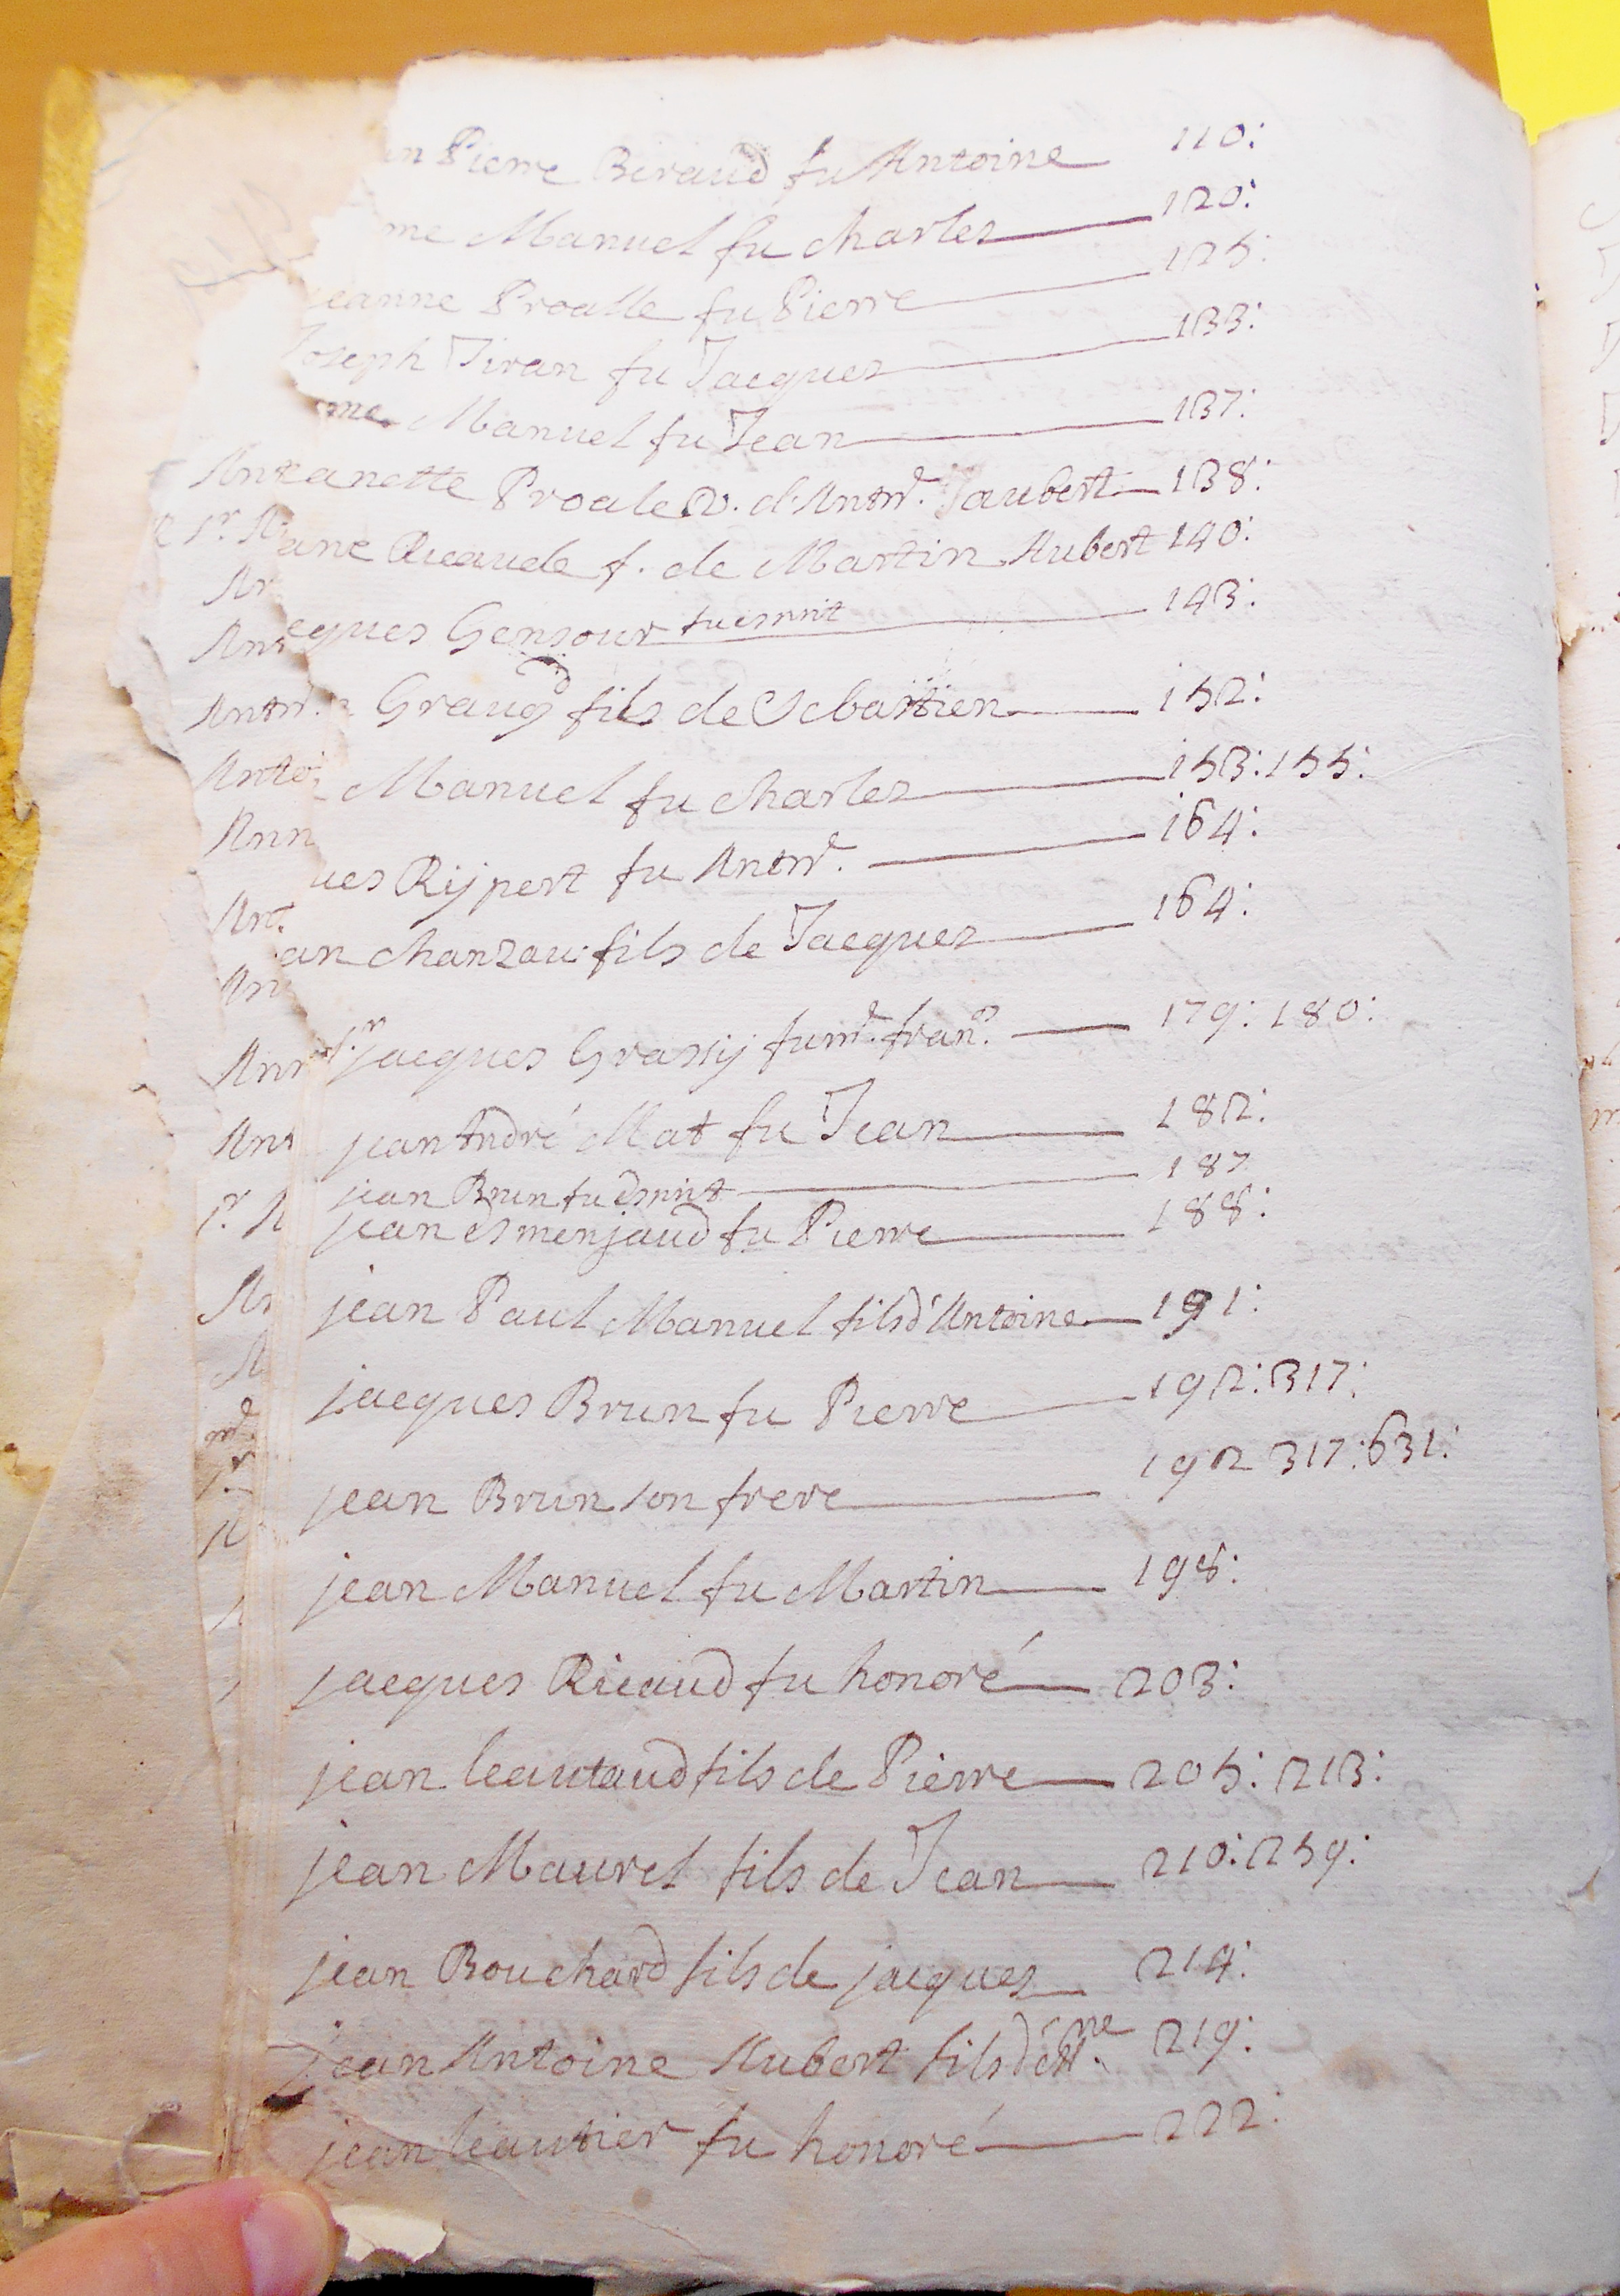 an Pierre Beraud fu Antoine 110:
me Manuel fu charles 120:
jeanne Proalle fu Pierre 125:
Joseph Tiran fu Jacques 133:
me Manuel fu Jean 137:
anette Proale v. d'Antne. Jaubert 138:
ane Ricaude f. de Martin Aubert 140:
cques Gensour fu esprit 143:
Graugd fils de Sebastien 152:
Manuel fu charles 153: 155:
ues Rijpert fu Antne. 164:
an chanzau fils de Jacques 164:
sr. jacques Grassij fu me. fran.s 179: 180:
jean André Mat fu Jean 182:
jean Brun fu Esprit 187
jean esmenjaud fu Pierre 188:
jean Paul Manuel fils d'Antoine 191:
jacques Brun fu Pierre 192: 317:
jean Brun son frere 192 317: 631:
jean Manuel fu Martin 198:
jacques Ricaud fu honoré 203:
jean leautaud fils de Pierre 205: 213:
jean Maurel fils de Jean 210: 259:
jean Bouchard fils de jacques 214:
jean Antoine Aubert fils d'Ette.ne 219:
jean leautier fu honoré 222: